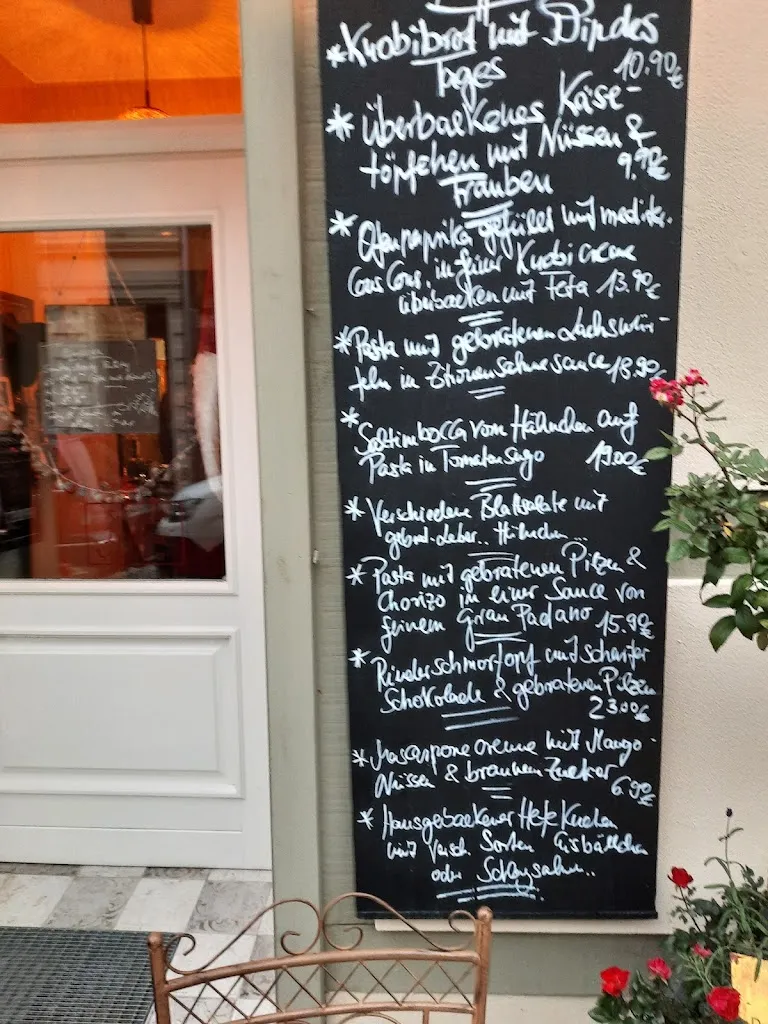 * Knobibrot mit Dip des
Tages 10.90€
* überbackenes Käse-
töpfchen mit Nüssen &
Trauben 9.90€
* Ofenpaprika gefüllt mit mediter.
Cous Cous, in feiner Knobicreme
überbacken mit Feta 13.90€
* Pasta mit gebratenen Lachswür-
feln in Zitronensahnesauce 18.90€
* Saltimbocca vom Hähnchen auf
Pasta in Tomatensugo 19.00€
* Verschiedene Blattsalate mit
gebrat. Leber.. Hähnchen...
* Pasta mit gebratenen Pilzen &
Chorizo in einer Sauce von
feinem Gran Padano 15.90€
* Rinderschmortopf mit scharfer
Schokolade & gebratenen Pilzen
23.00€
* Mascarpone creme mit Mango
Nüssen & braunem Zucker
6.90€
* Hausgebackener Hefekuchen
mit versch. Sorten Eisbällchen
oder Schlagsahne..